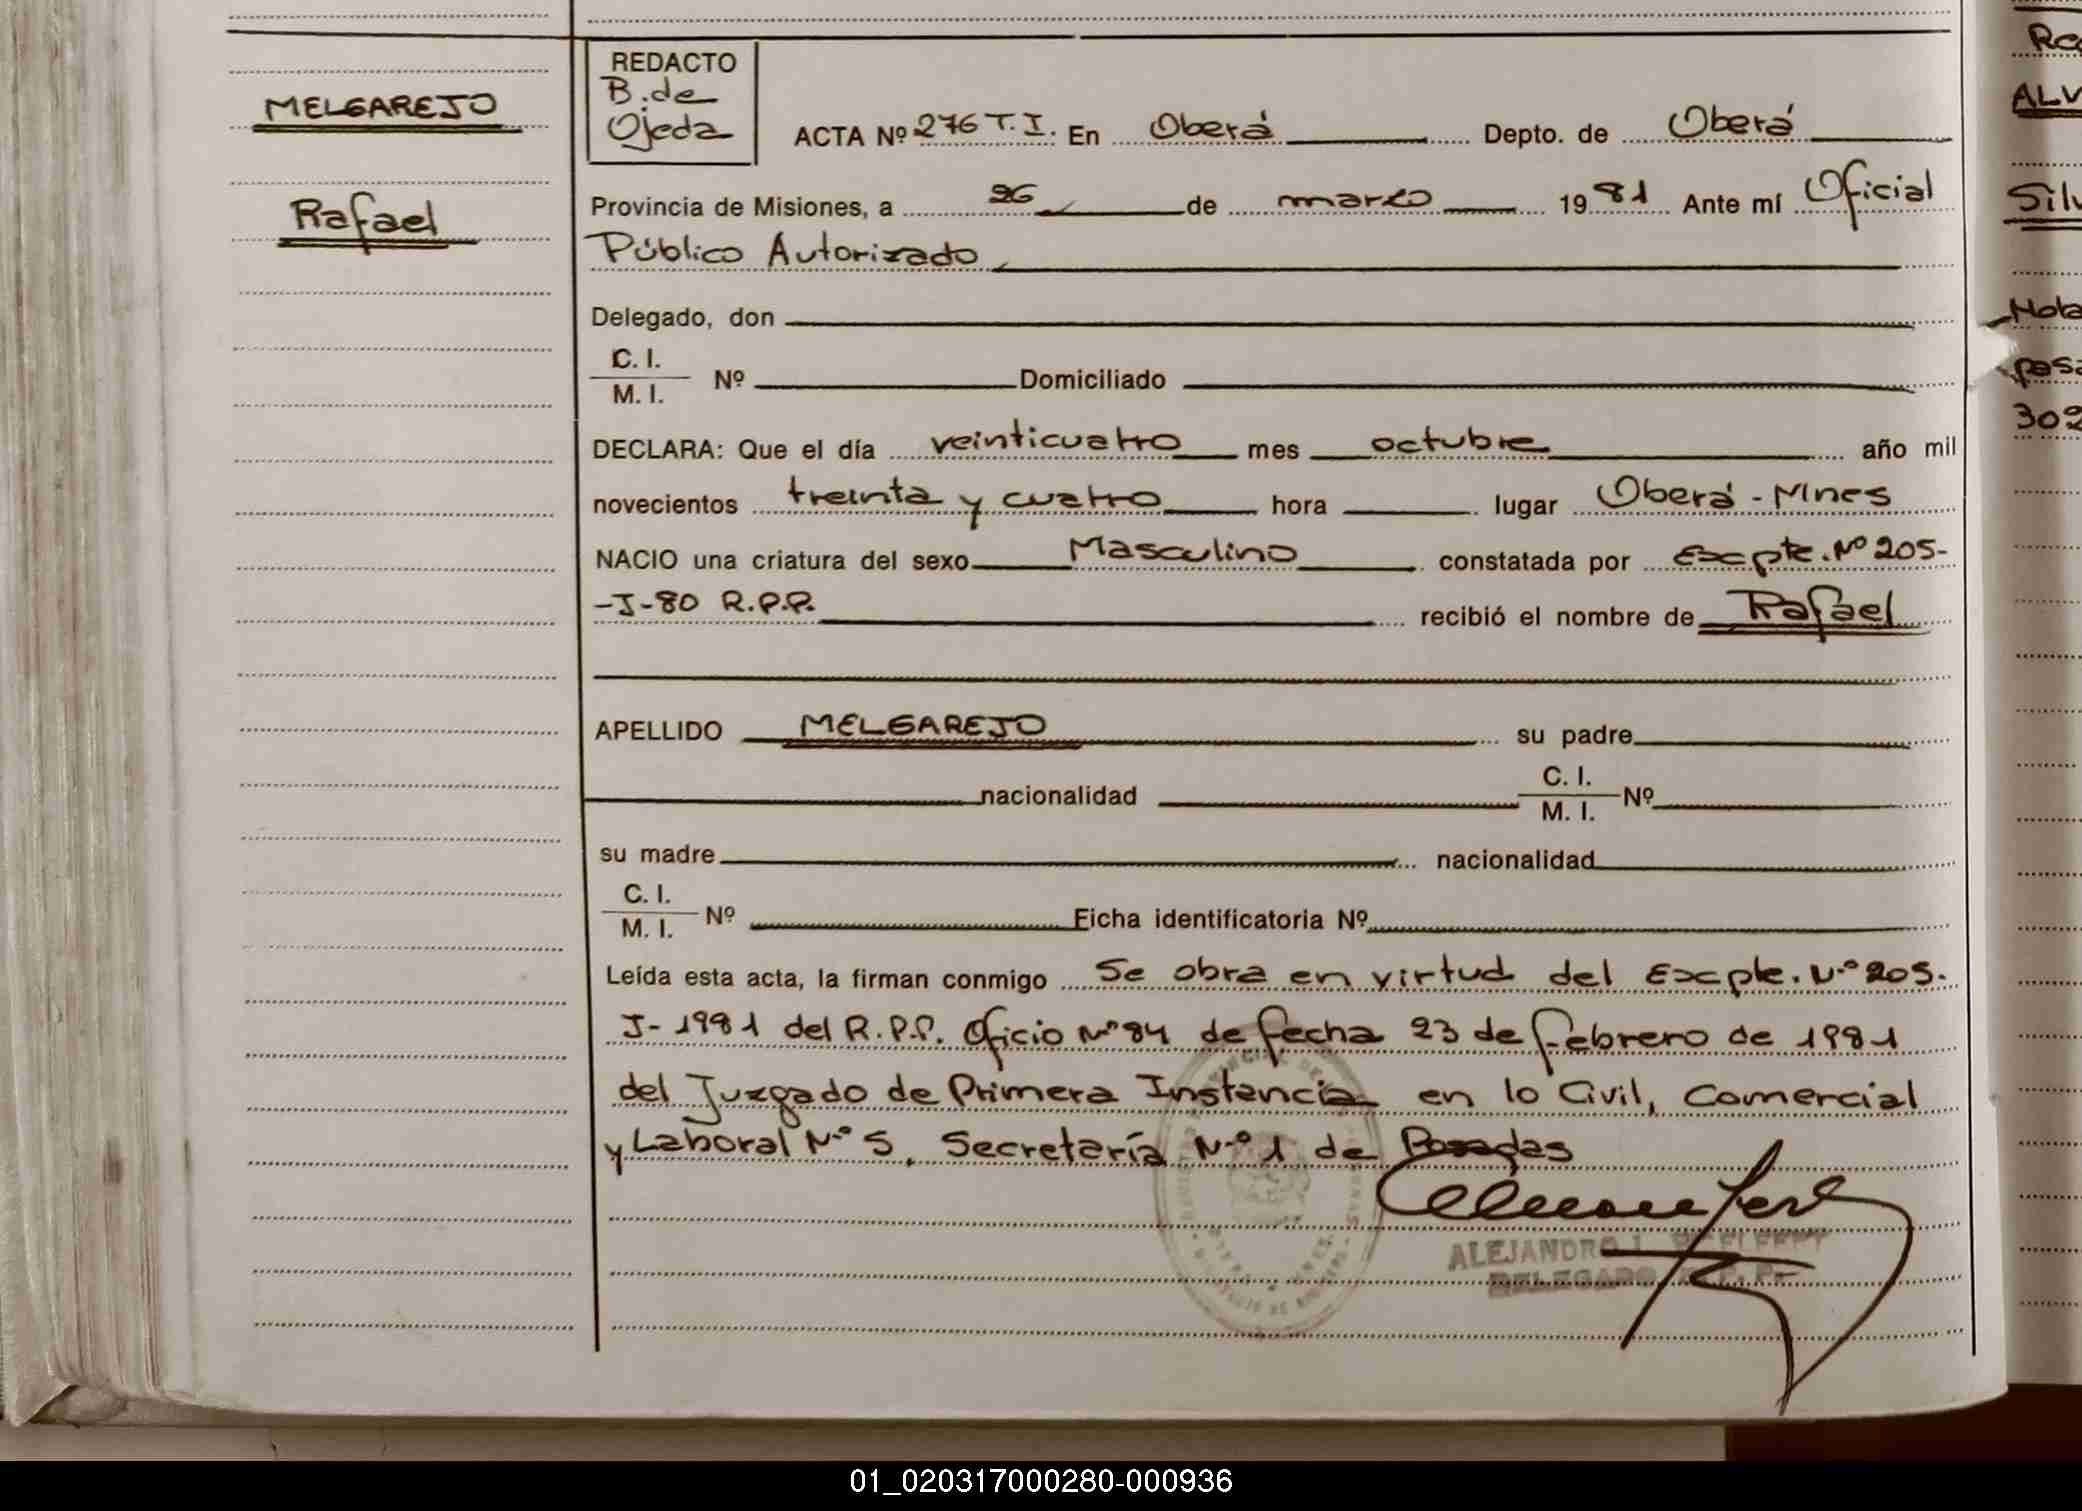 MELGAREJO
Rafael
REDACTO
B. de
Ojeda
ACTA Nº 276 T.I. En Oberá Depto. de Oberá
Provincia de Misiones, a 26 de marzo 1981 Ante mí Oficial
Público Autorizado
Delegado, don
C. I.
M. I. Nº Domiciliado
DECLARA: Que el día veinticuatro mes octubre año mil
novecientos treinta y cuatro hora lugar Oberá - Mnes
NACIO una criatura del sexo Masculino constatada por Excpte. Nº 205-
-J-80 R.P.P. recibió el nombre de Rafael
APELLIDO MELGAREJO su padre
nacionalidad C. I.
M. I. Nº
su madre nacionalidad
C. I.
M. I. Nº Ficha identificatoria Nº
Leída esta acta, la firman conmigo Se obra en virtud del Excpte. Nº 205.
J-1981 del R.P.P. Oficio Nº 84 de fecha 23 de febrero de 1981
del Juzgado de Primera Instancia en lo Civil, Comercial
y Laboral Nº 5, Secretaría Nº 1 de Posadas
ALEJANDRO I.
DELEGADO
ALV
Silv
Nota
pasa
302
01_020317000280-000936